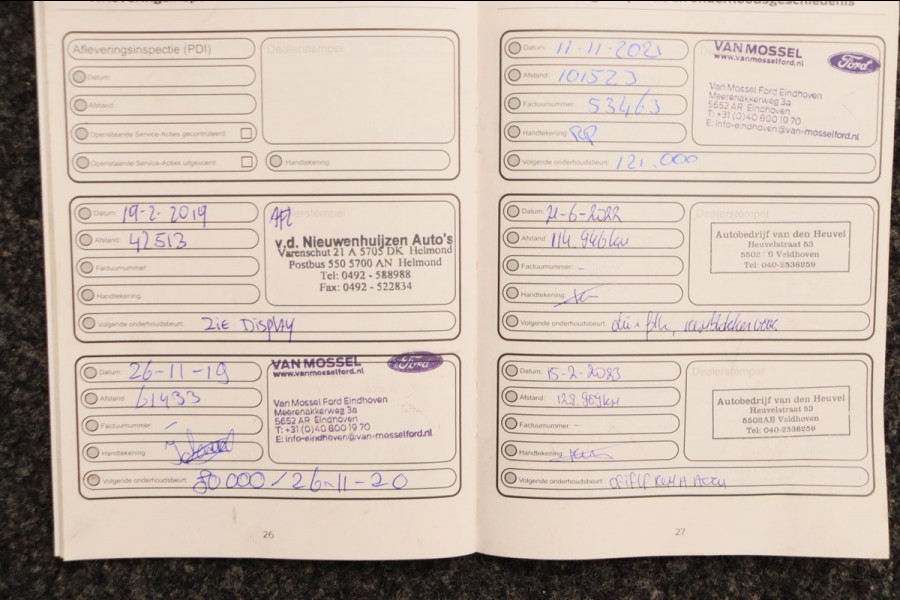 Afleveringsinspectie (PDI)
Dealerstempel
Datum:
Afstand:
Openstaande Service-Acties gecontroleerd:
Openstaande Service-Acties uitgevoerd:
Handtekening
Datum: 19-2-2019
Afstand: 42513
Factuurnummer:
Handtekening:
Volgende onderhoudsbeurt: ZIE DISPLAY
Dealerstempel
v.d. Nieuwenhuijzen Auto's
Varenschut 21 A 5705 DK Helmond
Postbus 550 5700 AN Helmond
Tel: 0492 - 588988
Fax: 0492 - 522834
Datum: 26-11-19
Afstand: 61433
Factuurnummer:
Handtekening:
Volgende onderhoudsbeurt: 80000/26-11-20
VAN MOSSEL
www.vanmosselford.nl
Ford
Van Mossel Ford Eindhoven
Meerenakkerweg 3a
5652 AR Eindhoven
T: +31 (0)40 800 19 70
E: info-eindhoven@van-mosselford.nl
26
onderhoudsgeschiedenis
Datum: 11-11-2021
Afstand: 101523
Factuurnummer: 53463
Handtekening:
Volgende onderhoudsbeurt: 121.000
VAN MOSSEL
www.vanmosselford.nl
Ford
Van Mossel Ford Eindhoven
Meerenakkerweg 3a
5652 AR Eindhoven
T: +31 (0)40 800 19 70
E: info-eindhoven@van-mosselford.nl
Datum: 21-6-2022
Afstand: 114.946km
Factuurnummer: -
Handtekening:
Volgende onderhoudsbeurt:
Dealerstempel
Autobedrijf van den Heuvel
Heuvelstraat 53
5502 B Veldhoven
Tel: 040-2536259
Datum: 15-2-2023
Afstand: 128.969km
Factuurnummer: -
Handtekening:
Volgende onderhoudsbeurt:
Dealerstempel
Autobedrijf van den Heuvel
Heuvelstraat 53
5502AB Veldhoven
Tel: 040-2536259
27